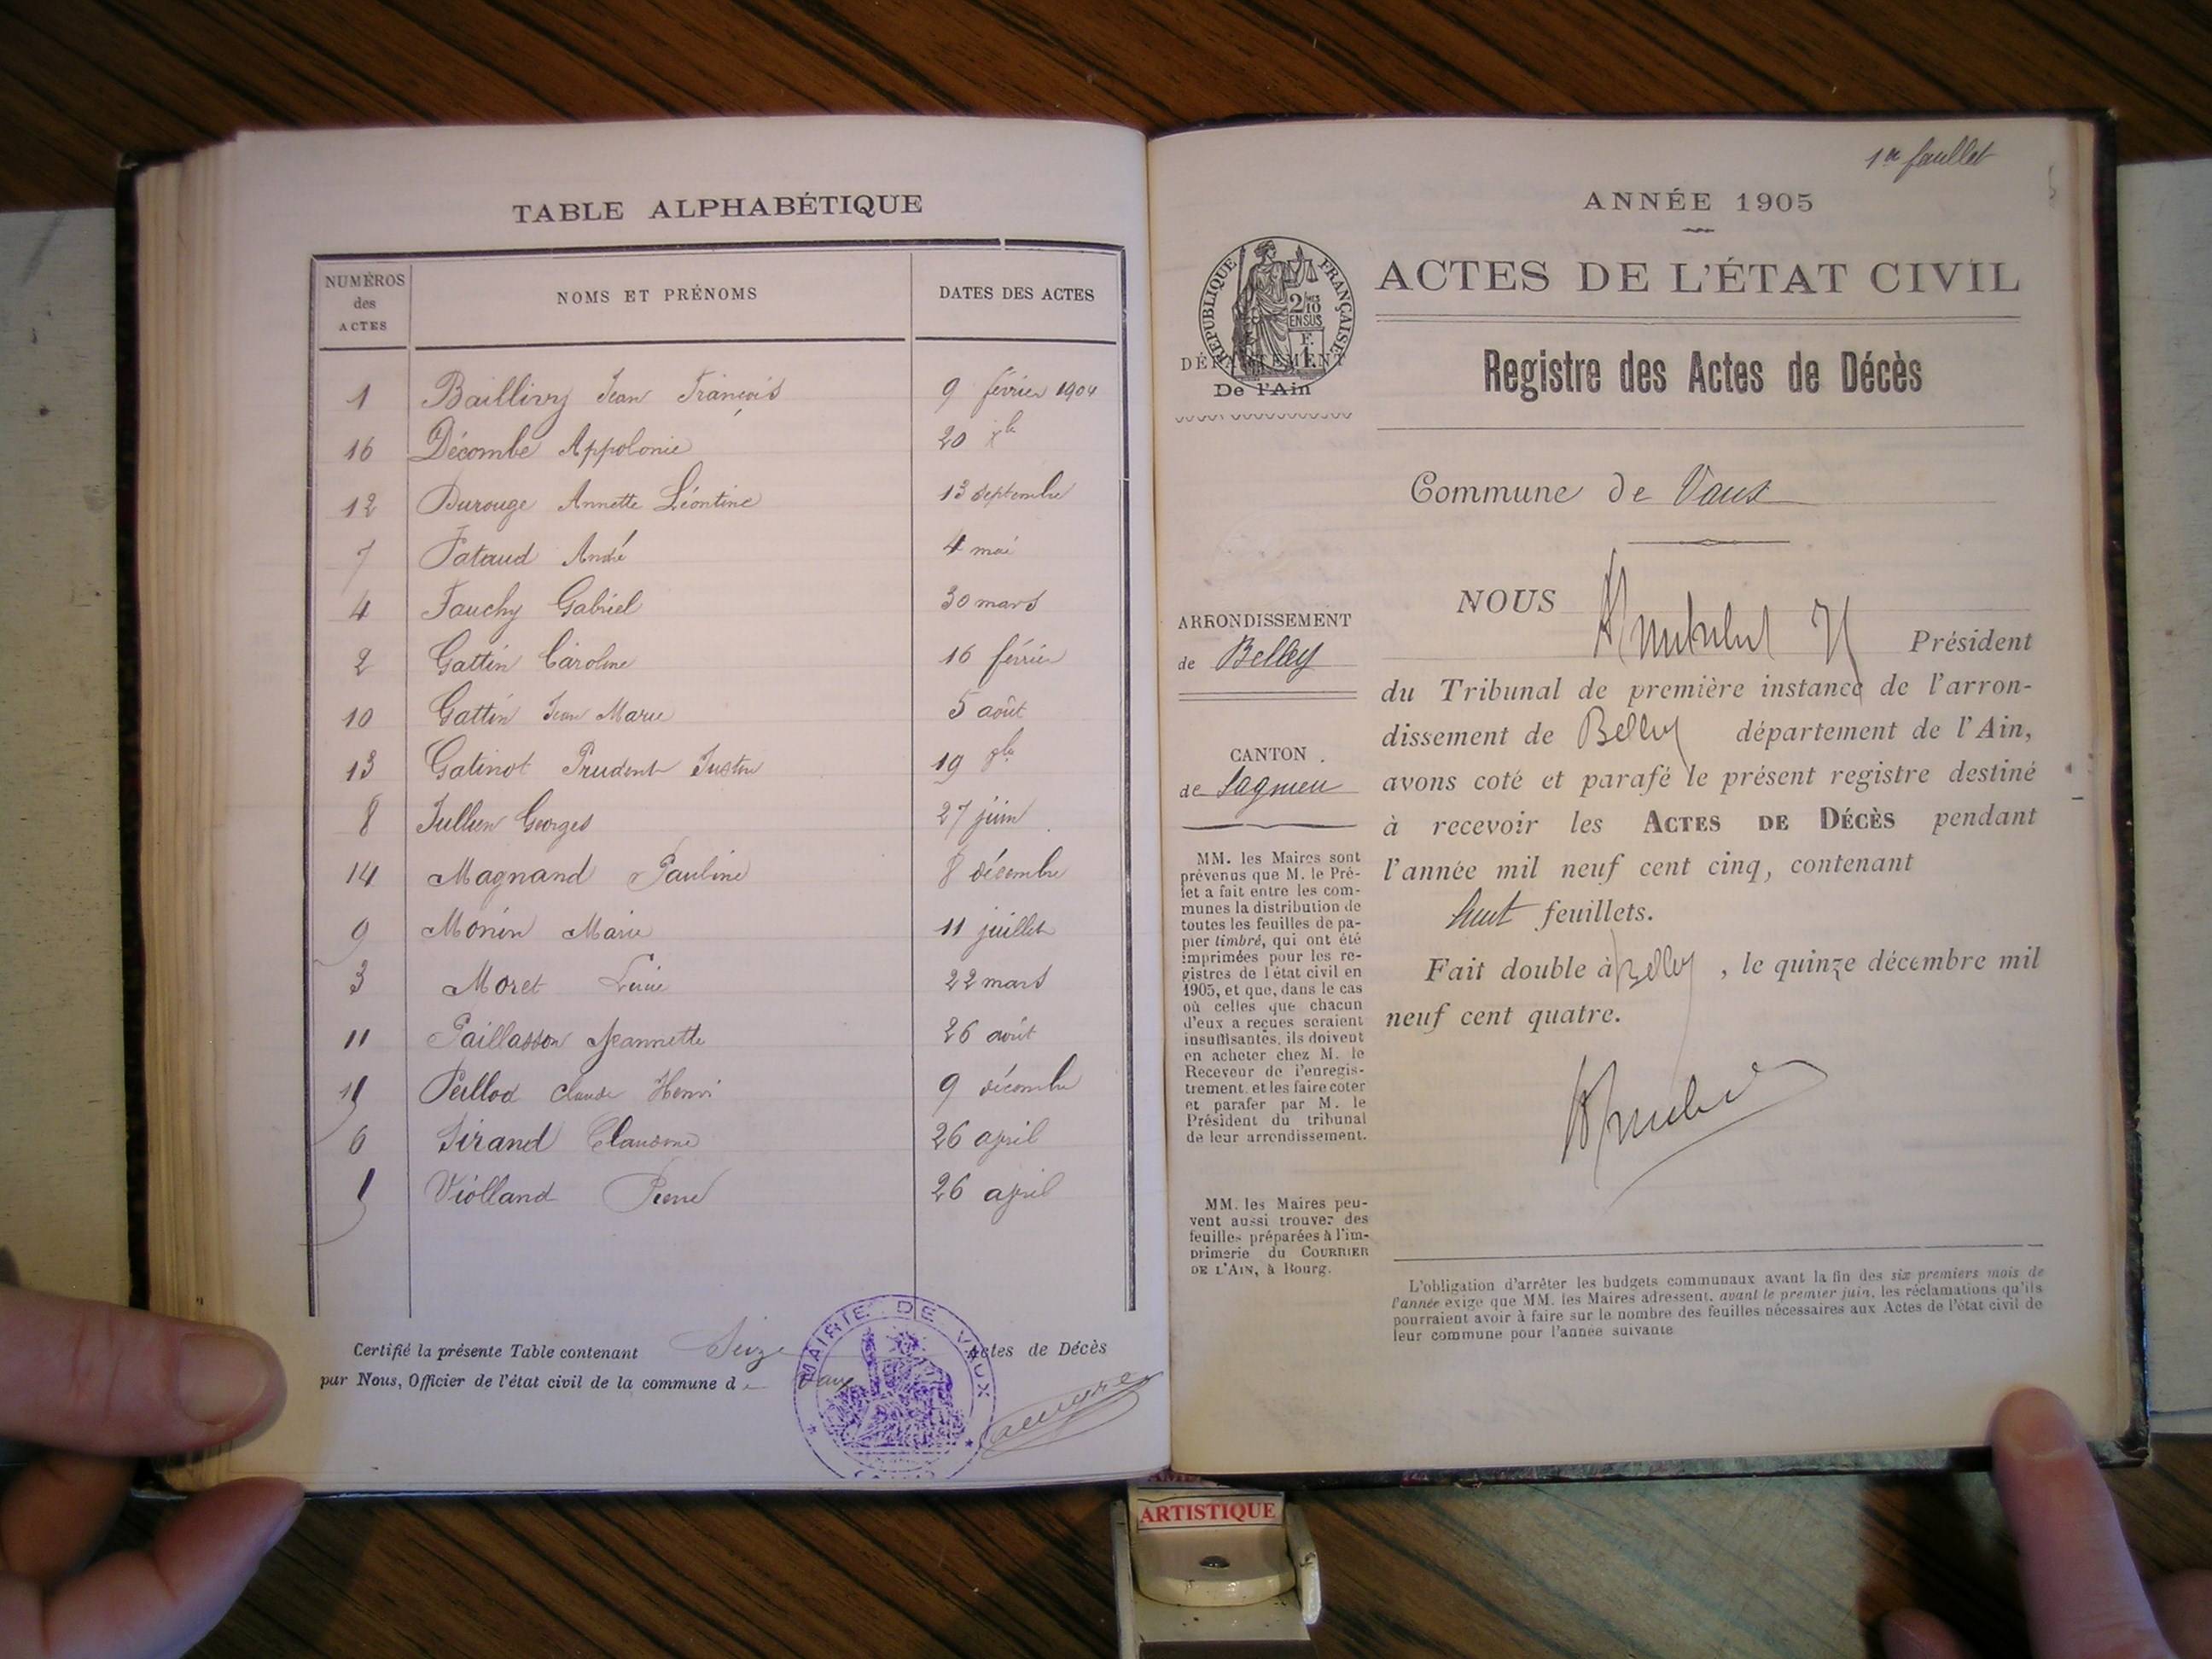 TABLE ALPHABÉTIQUE
NUMÉROS des ACTES NOMS ET PRÉNOMS DATES DES ACTES
1 Baillivy Jean François 9 février 1904
16 Décombe Appolonie 20 Xbre
12 Durouge Annette Léontine 13 septembre
7 Fataud André 4 mai
4 Fauchy Gabriel 30 mars
2 Gattin Caroline 16 février
10 Gattin Jean Marie 5 août
13 Gatinot Prudent Justin 19 8bre
8 Jullien Georges 27 juin
14 Magnand Pauline 8 décembre
9 Monin Marie 11 juillet
3 Moret 22 mars
11 Paillasson Jeannette 26 août
15 Peillod Claude Henri 9 décembre
6 Sirand Claudine 26 april
5 Violland Pierre 26 april
Certifié la présente Table contenant Seize actes de Décès
par Nous, Officier de l'état civil de la commune de Vaux
MAIRIE DE VAUX
1er feuillet
ANNÉE 1905
ACTES DE L'ÉTAT CIVIL
RÉPUBLIQUE FRANÇAISE
2/10 EN SUS
DÉPARTEMENT
De l'Ain
Registre des Actes de Décès
Commune de Vaux
NOUS
Président
du Tribunal de première instance de l'arron-
dissement de Belley département de l'Ain,
avons coté et parafé le présent registre destiné
à recevoir les ACTES DE DÉCÈS pendant
l'année mil neuf cent cinq, contenant
huit feuillets.
Fait double à Belley, le quinze décembre mil
neuf cent quatre.
ARRONDISSEMENT
de Belley
CANTON
de Lagnieu
MM. les Maires sont
prévenus que M. le Pré-
fet a fait entre les com-
munes la distribution de
toutes les feuilles de pa-
pier timbré, qui ont été
imprimées pour les re-
gistres de l'état civil en
1905, et que, dans le cas
où celles que chacun
d'eux a reçues seraient
insuffisantes, ils doivent
en acheter chez M. le
Receveur de l'enregis-
trement, et les faire coter
et parafer par M. le
Président du tribunal
de leur arrondissement.
MM. les Maires peu-
vent aussi trouver des
feuilles préparées à l'im-
primerie du COURRIER
DE L'AIN, à Bourg.
L'obligation d'arrêter les budgets communaux avant la fin des six premiers mois de
l'année exige que MM. les Maires adressent, avant le premier juin, les réclamations qu'ils
pourraient avoir à faire sur le nombre des feuilles nécessaires aux Actes de l'état civil de
leur commune pour l'année suivante
ARTISTIQUE